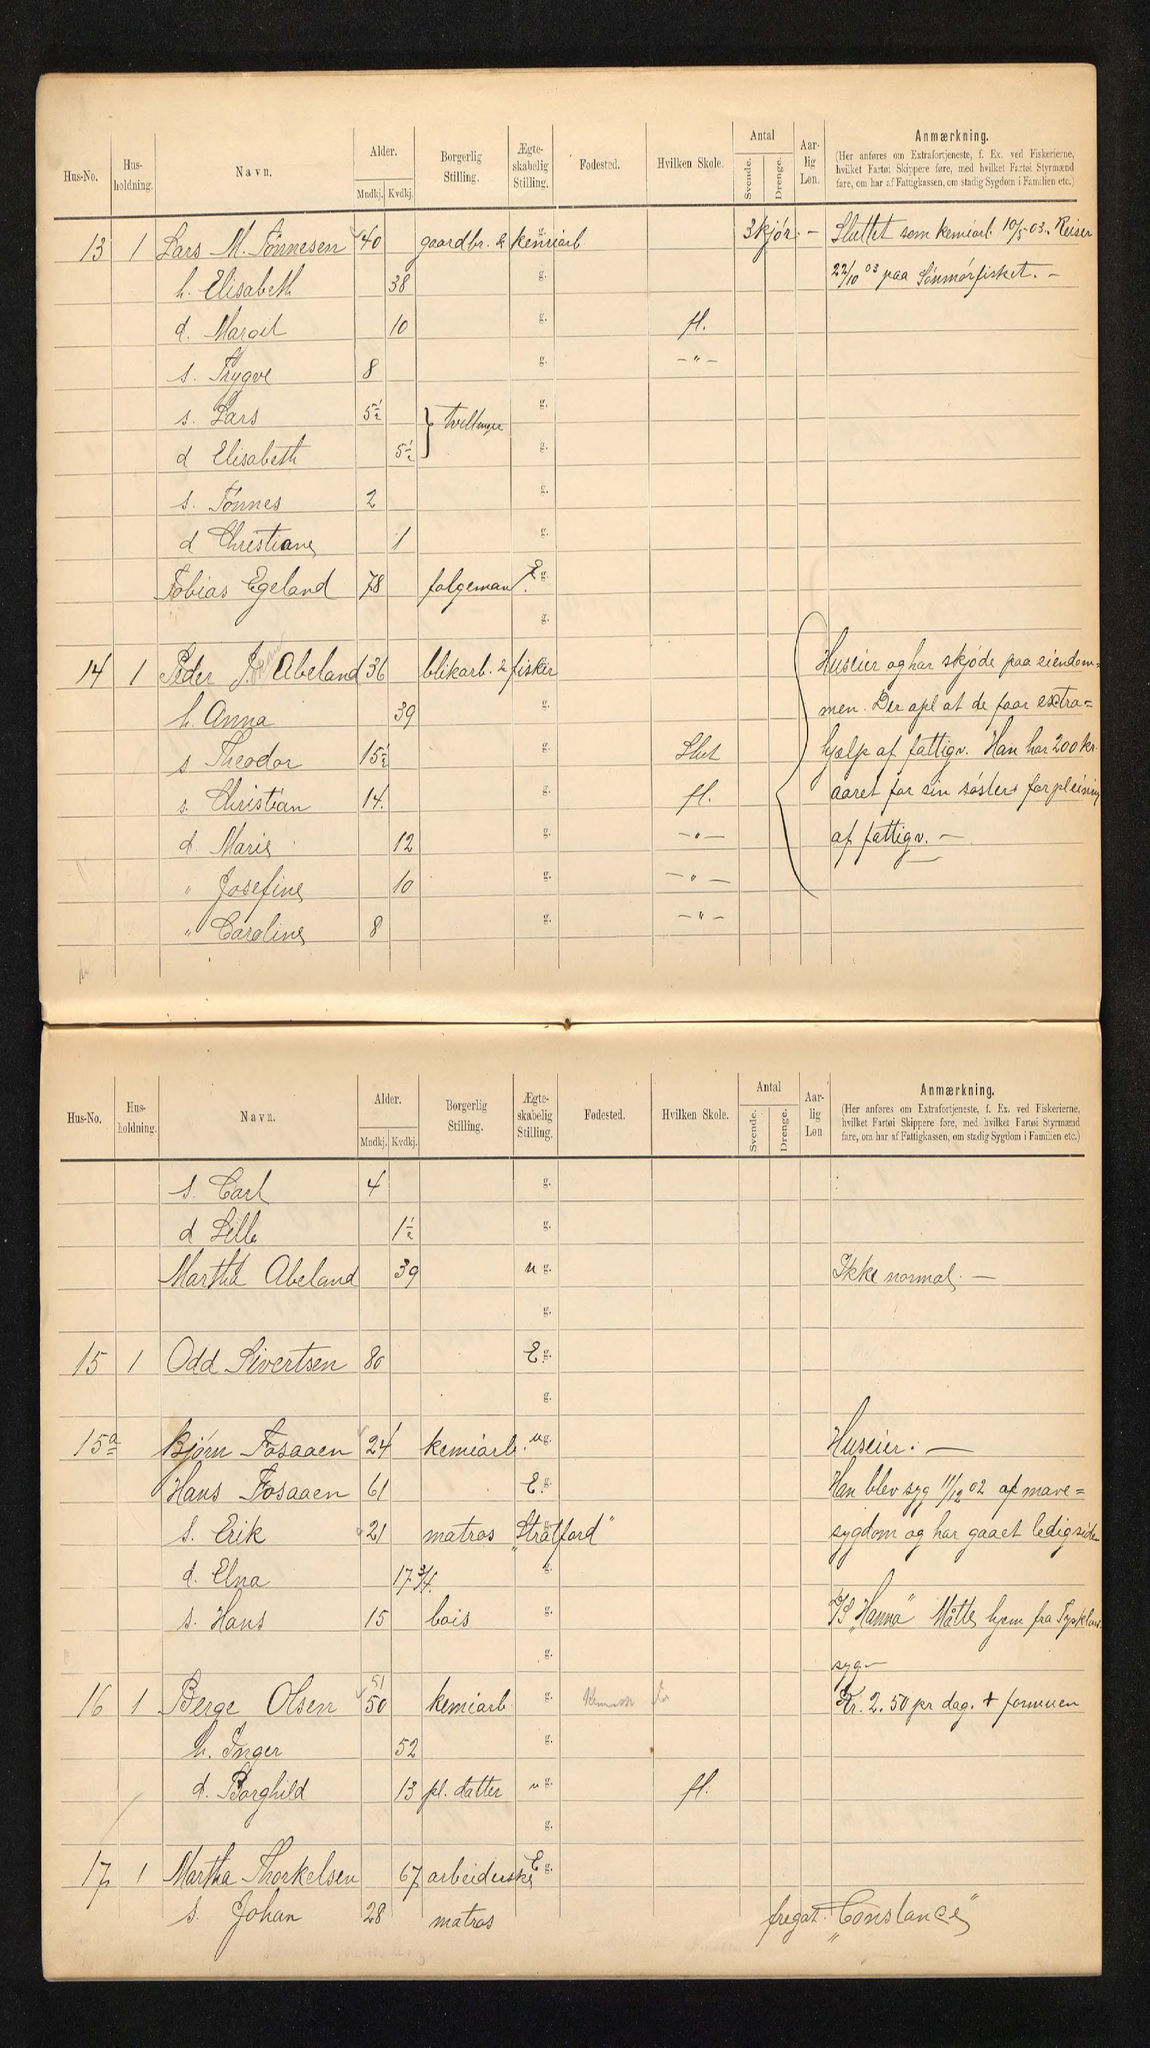 Hus-No. Hus-holdning. Navn. Alder. Mndkj. Kvdkj. Borgerlig Stilling. Ægte-skabelig Stilling. Fødested. Hvilken Skole. Antal Svende. Drenge. Aar-lig Løn. Anmærkning.
(Her anføres om Extrafortjeneste, f. Ex. ved Fiskerierne, hvilket Fartøi Skippere føre, med hvilket Fartøi Styrmænd fare, om har af Fattigkassen, om stadig Sygdom i Familien etc.)
13 1 Lars M. Tønnesen 40 gaardbr. & kemiarb g. 3 kjør. - Sluttet som kemiarb. 10/5 03. Reiser
h. Elisabeth 38 g. 22/10 03 paa Sønmørfisket. -
d. Margit 10 g. fl.
s. Trygve 8 g. - " -
s. Lars 5 1/2 } tvillinger g.
d Elisabeth 5 1/2 g.
s. Tønnes 2 g.
d Christiane 1 g.
Tobias Egeland 78 følgeman E. g.
g.
14 1 Peder J. Abeland 36 blikarb. & fisker Huseier og har skjøde paa eiendom=
h. Anna 39 g. men. Der opl at de faar extra=
s Theodor 15 1/2 g. Slut hjælp af fattigv. Han har 200 kr.
s. Christian 14. g. fl. aaret for sin søsters forpleining
d. Marie 12 g. - " - af fattigv. -
" Josefine 10 g. - " -
" Caroline 8 g. - " -
Hus-No. Hus-holdning. Navn. Alder. Mndkj. Kvdkj. Borgerlig Stilling. Ægte-skabelig Stilling. Fødested. Hvilken Skole. Antal Svende. Drenge. Aar-lig Løn Anmærkning.
(Her anføres om Extrafortjeneste, f. Ex. ved Fiskerierne, hvilket Fartøi Skippere føre, med hvilket Fartøi Styrmænd fare, om har af Fattigkassen, om stadig Sygdom i Familien etc.)
s. Carl 4 g.
d Lilli 1 1/2 g.
Martha Abeland 39 u g. Ikke normal. -
g.
15 1 Odd Sivertsen 80 E. g.
g.
15 a Bjørn Fosaaen 24 kemiarb. u g. Huseier. -
Hans Fosaaen 61 E. g. Han blev syg 11/12 02 af mave=
s. Erik 21 matros "Stratford" g. sygdom og har gaaet ledig siden
d. Elna 17 3/4. g.
s. Hans 15 bois g. D/S "Hanna" Måtte hjem fra Tyskland
g. syg -
16 1 Berge Olsen 51 50 kemiarb g. Kr. 2.50 pr dag. + formuen
h. Inger 52 g.
d. Borghild 13 pl. datter u g. fl.
g.
17 1 Martha Thorkelsen 67 arbeiderske E g.
s. Johan 28 matros fregat. "Constance"